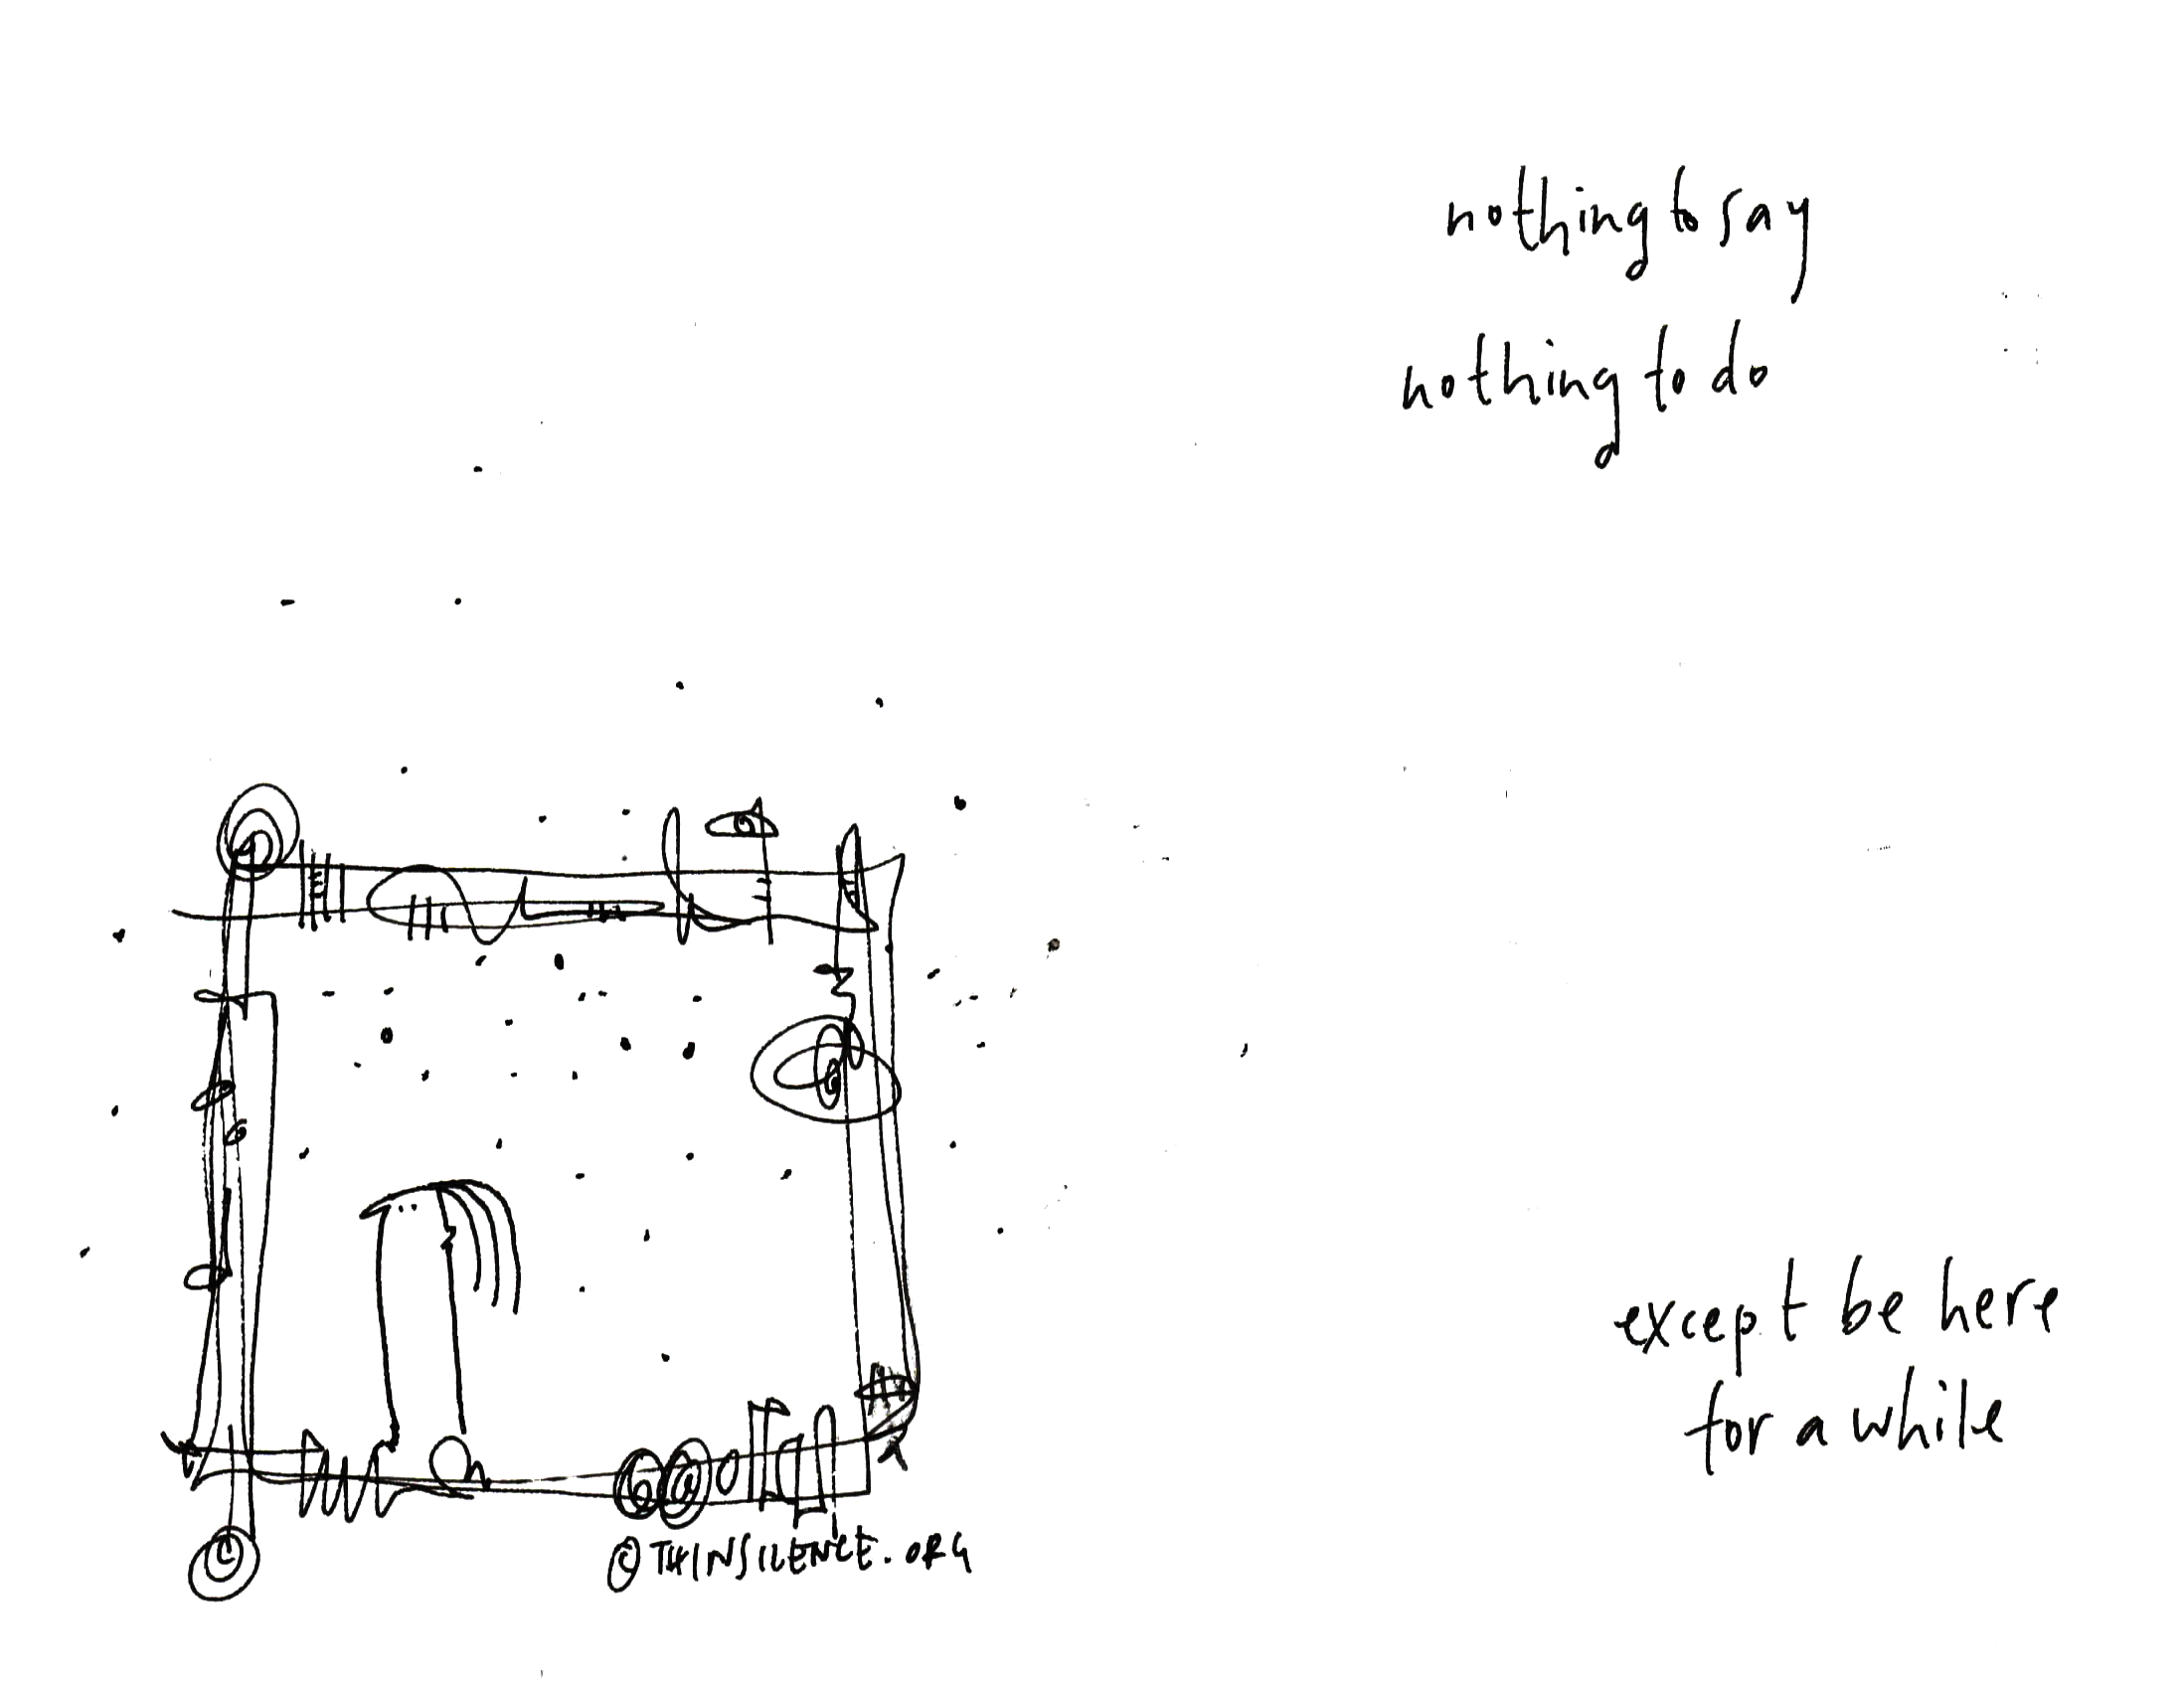 nothing to say
nothing to do
except be here
for a while
© THINSILENCE.ORG